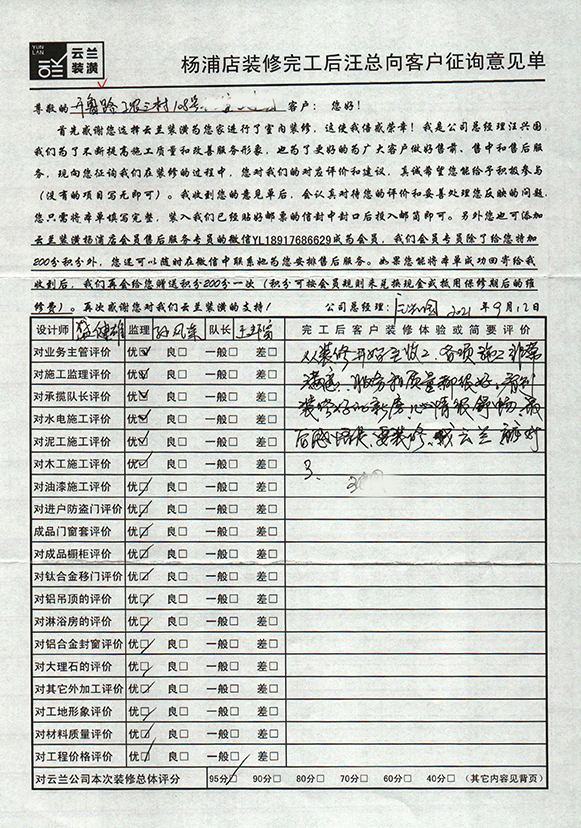 YUN LAN
云兰装潢
杨浦店装修完工后汪总向客户征询意见单
尊敬的 开鲁路 工农三村108号 客户： 您好！
首先感谢您选择云兰装潢为您家进行了室内装修，这使我倍感荣幸！我是公司总经理汪兴国，
我们为了不断提高施工质量和改善服务形象，也为了更好的为广大客户做好售前、售中和售后服
务，现向您征询我们在装修的过程中，您对我们的对应评价和建议，真诚希望您能给予积极参与
（没有的项目写无即可）。我收到您的意见单后，会认真对待您的评价和妥善处理您反映的问题，
您只需将本单填写完整，装入我们已经贴好邮票的信封中封口后投入邮筒即可。另外您也可添加
云兰装潢杨浦店会员售后服务专员的微信YL18917686629成为会员，我们会员专员除了给您特加
200分积分外，您还可以随时在微信中联系她为您安排售后服务。如果您能将本单成功回寄给我
收到后，我们再会给您赠送积分200分一次（积分可按会员规则来兑换现金或抵用保修期后的维
修费）。再次感谢您对我们云兰装潢的支持！ 公司总经理： 汪兴国 2021 年9月12日
设计师 监理 队长 完工后客户装修体验或简要评价
对业务主管评价 优□ 良□ 一般□ 差□ 从装修开始至收工，各项施工非常
对施工监理评价 优□ 良□ 一般□ 差□ 满意，服务和质量都很好，看到
对承揽队长评价 优□ 良□ 一般□ 差□ 装修好的新房，心情很舒畅，最
对水电施工评价 优□ 良□ 一般□ 差□ 后感悟是，要装修，找云兰 就对
对泥工施工评价 优□ 良□ 一般□ 差□ 了。
对木工施工评价 优□ 良□ 一般□ 差□
对油漆施工评价 优□ 良□ 一般□ 差□
对进户防盗门评价 优□ 良□ 一般□ 差□
成品门窗套评价 优□ 良□ 一般□ 差□
对成品橱柜评价 优□ 良□ 一般□ 差□
对钛合金移门评价 优□ 良□ 一般□ 差□
对铝吊顶的评价 优□ 良□ 一般□ 差□
对淋浴房的评价 优□ 良□ 一般□ 差□
对铝合金封窗评价 优□ 良□ 一般□ 差□
对大理石的评价 优□ 良□ 一般□ 差□
对其它外加工评价 优□ 良□ 一般□ 差□
对工地形象评价 优□ 良□ 一般□ 差□
对材料质量评价 优□ 良□ 一般□ 差□
对工程价格评价 优□ 良□ 一般□ 差□
对云兰公司本次装修总体评分 95分□ 90分□ 80分□ 70分□ 60分□ 40分□ （其它内容见背页）